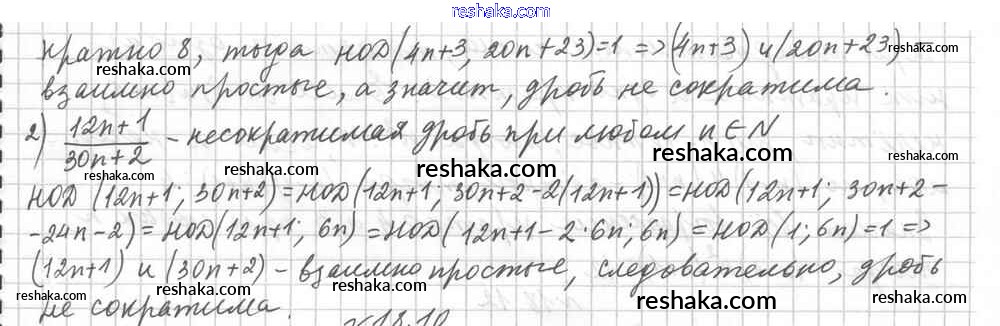 www.reshaka.com
reshaka.com
кратно 8, тогда НОД(4n+3, 20n+23)=1 => (4n+3) и (20n+23) –
reshaka.com reshaka.com reshaka.com
взаимно простые, а значит, дробь не сократима.
2) 12n+1/30n+2 - несократимая дробь при любом n ∈ N
reshaka.com reshaka.com reshaka.com
НОД (12n+1; 30n+2) = НОД(12n+1; 30n+2-2(12n+1)) = НОД(12n+1; 30n+2-
reshaka.com reshaka.com reshaka.com
-24n-2) = НОД(12n+1; 6n) = НОД(12n+1-2·6n; 6n) = НОД(1; 6n) = 1 =>
(12n+1) и (30n+2) - взаимно простые, следовательно, дробь
reshaka.com reshaka.com reshaka.com
не сократима.
18.10
reshaka.com